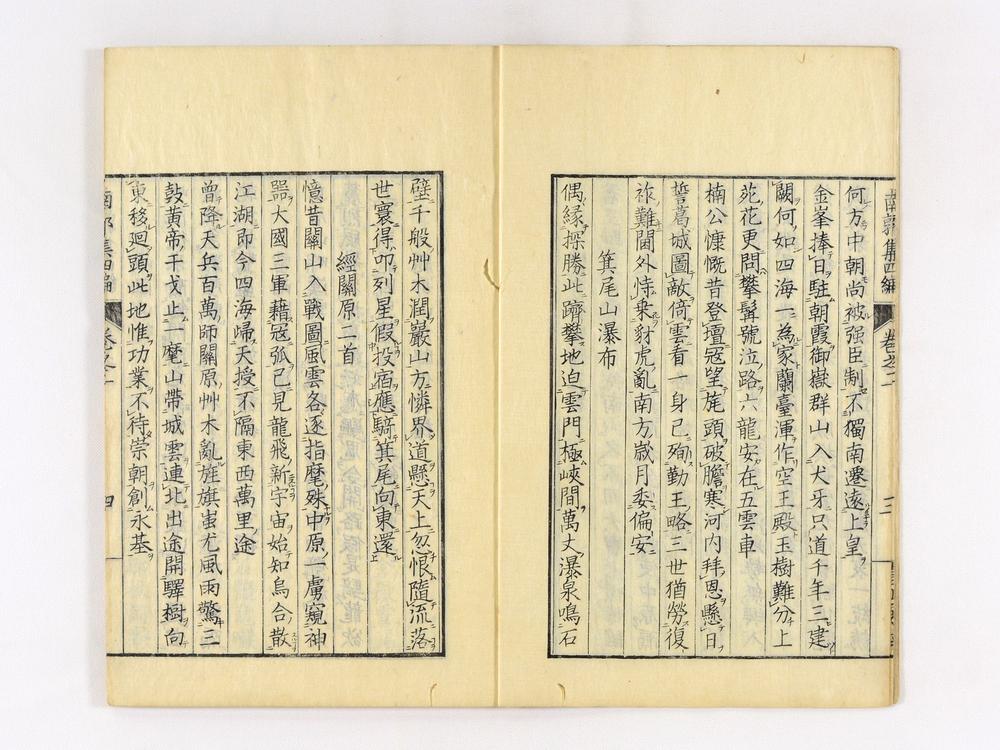 南郭集四編 卷之二 三
何方中朝尚被强臣制不獨南遷遠上皇
金峯捧日駐朝霞御嶽群山入犬牙只道千年三建
闕何如四海一為家蘭臺渾作空王殿玉樹難分上
苑花更問攀髯號泣路六龍安在五雲車
楠公慷慨昔登壇冦望旄頭破膽寒河内拜恩懸日
誓葛城圖敵倚雲看一身已殉勤王略三世猶勞復
祚難閫外恃乗豺虎亂南方歲月委偏安
箕尾山瀑布
偶緣探勝此躋攀地迫雲門極峽間萬丈瀑泉鳴石
壁千般艸木潤巖山方憐界道懸天上忽恨隨流落
世寰得叩列星假投宿應騎箕尾向東還
經關原二首
憶昔關山入戰圖風雲各逐指麾殊中原一虜窺神
器大國三軍藉冦弧已見龍飛新宇宙始知烏合散
江湖即今四海歸天授不隔東西萬里途
曾降天兵百萬師關原艸木亂旌旗蚩尤風雨驚三
鼓黃帝干戈止一麾山帶城雲連北出途開驛樹向
東移廻頭此地惟功業不待崇朝創永基
南郭集四編 卷之二 四